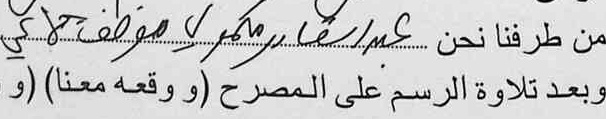 من طرفنا نحن عبد القادر موظف
وبعد تلاوة الرسم على المصرح (و وقعه معنا) (و